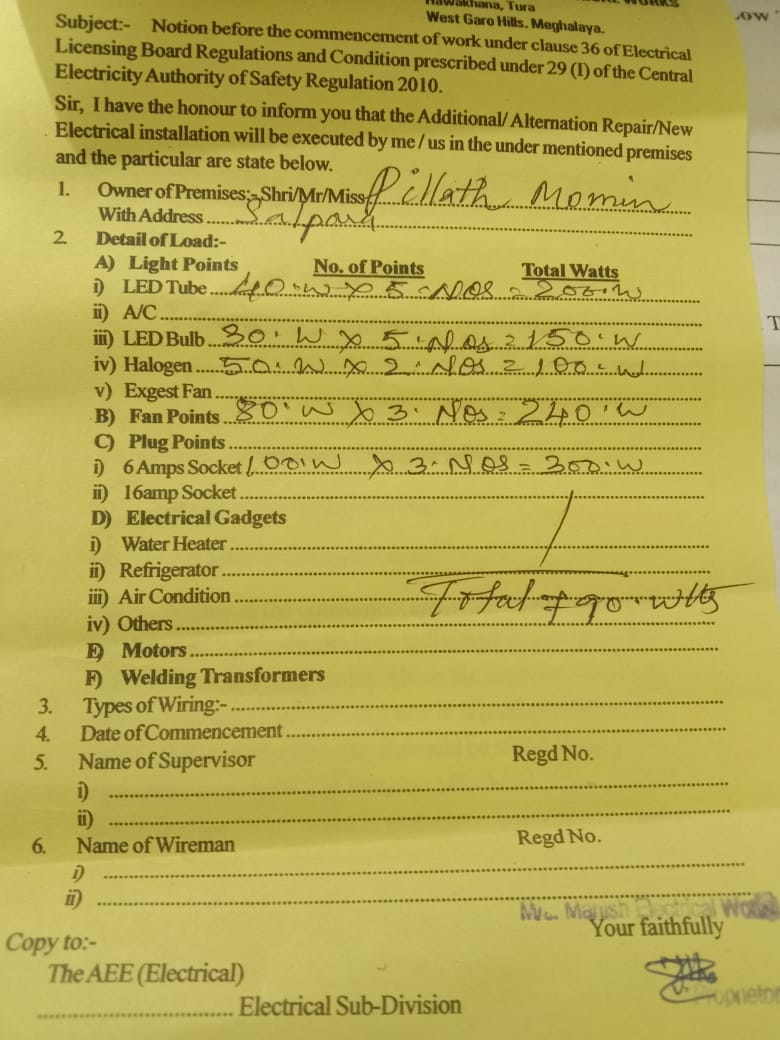 Hawakhana, Tura
West Garo Hills. Meghalaya.
Subject:- Notion before the commencement of work under clause 36 of Electrical
Licensing Board Regulations and Condition prescribed under 29 (I) of the Central
Electricity Authority of Safety Regulation 2010.
Sir, I have the honour to inform you that the Additional/ Alternation Repair/New
Electrical installation will be executed by me / us in the under mentioned premises
and the particular are state below.
1. Owner of Premises:- Shri/Mr/Miss Pillath Momin
With Address Salpara
2. Detail of Load:-
A) Light Points No. of Points Total Watts
i) LED Tube 40.W x 5.Nos = 200.W
ii) A/C
iii) LED Bulb 30.W x 5.Nos = 150.W
iv) Halogen 50.W x 2.Nos = 100.W
v) Exgest Fan
B) Fan Points 80.W x 3.Nos = 240.W
C) Plug Points
i) 6 Amps Socket 100.W x 3.Nos = 300.W
ii) 16amp Socket
D) Electrical Gadgets
i) Water Heater
ii) Refrigerator
iii) Air Condition Total 790.Wtts
iv) Others
E) Motors
F) Welding Transformers
3. Types of Wiring:-
4. Date of Commencement
5. Name of Supervisor Regd No.
i)
ii)
6. Name of Wireman Regd No.
i)
ii)
Electrical
Your faithfully
Copy to:-
The AEE (Electrical)
Proprietor
Electrical Sub-Division